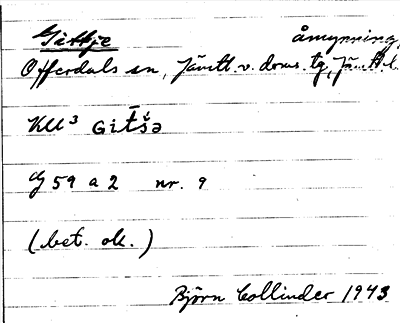 Gättje åmynning,
Offerdals sn, Jämtl. v. doms. tg, Jä. l.
KU³ Gitšə
G 59 a 2 nr. 9
(bet. ok.)
Björn Collinder 1943